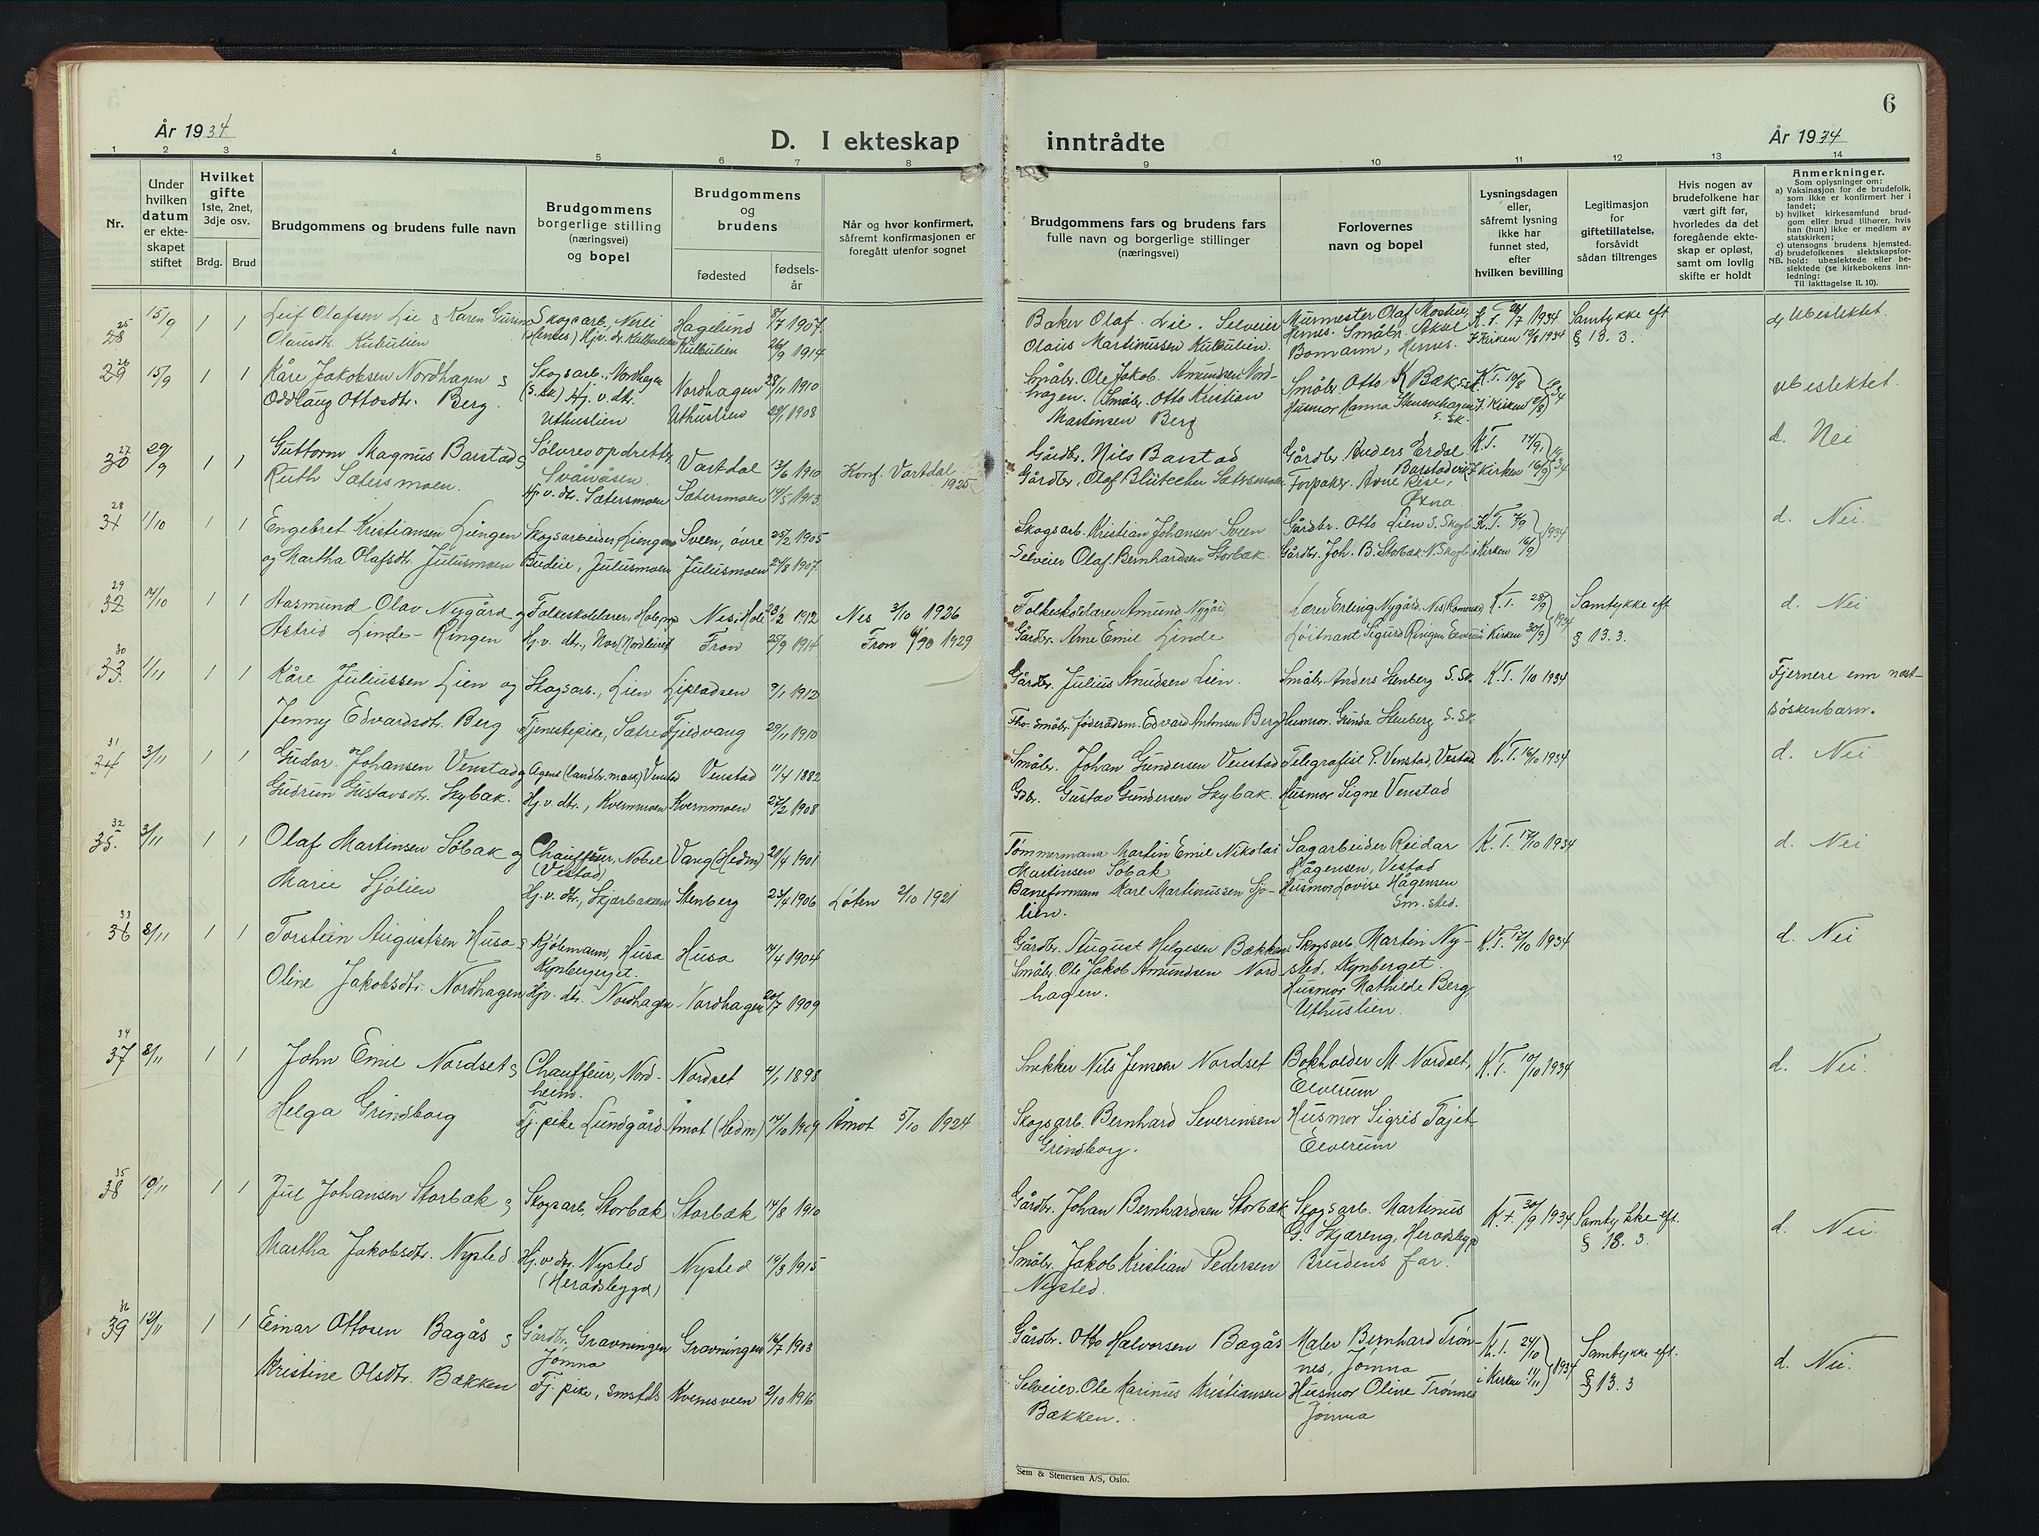 6
År 1934
D. I ekteskap inntrådte
År 1934
1 2 3 4 5 6 7 8 9 10 11 12 13 14
Nr.
Under hvilken datum er ekteskapet stiftet
Hvilket gifte 1ste, 2net, 3dje osv.
Brdg. Brud
Brudgommens og brudens fulle navn
Brudgommens borgerlige stilling (næringsvei) og bopel
Brudgommens og brudens
fødested
fødselsår
Når og hvor konfirmert, såfremt konfirmasjonen er foregått utenfor sognet
Brudgommens fars og brudens fars fulle navn og borgerlige stillinger (næringsvei)
Forlovernes navn og bopel
Lysningsdagen eller, såfremt lysning ikke har funnet sted, efter hvilken bevilling
Legitimasjon for giftetillatelse, forsåvidt sådan tiltrenges
Hvis nogen av brudefolkene har vært gift før, hvorledes da det foregående ekteskap er opløst, samt om lovlig skifte er holdt
Anmerkninger.
Som oplysninger om:
a) Vaksinasjon for de brudefolk, som ikke er konfirmert her i landet;
b) hvilket kirkesamfund brudgom eller brud tilhører, hvis han (hun) ikke er medlem av statskirken;
c) utensogns brudens hjemsted.
d) brudefolkenes slektskapsforhold: ubeslektede eller beslektede (se kirkebokens innledning:
Til iakttagelse II. 10).
25 28 15/9 1 1 Leif Olafsen Lie & Karen Gurine Skogsarb., Nerli Hagelund 8/7 1907
Olausdtr. Kulbulien (Hernes) Hjv. dr. Kulbulien Kulbulien 26/9 1914
Baker Olaf Lie. Selveier Murmester Olaf Mostue, K.T. 1934 Samtykke eft d) Ubeslektet.
Olaus Martinussen Kulbulien. Hernes. Småbr. Aksel Bomann, Hernes. i Kirken 12/8 1934 § 13. 3.
26 29 15/9 1 1 Kåre Jakobsen Nordhagen & Skogsarb., Nordhagen Nordhagen 28/11 1910
Oddlaug Ottosdtr. Berg. (S. Sk) Hj. v. dtr. Uthuslien Uthuslien 29/1 1908
Småbr. Ole Jakob Amundsen Nordhagen. Småbr. Otto Kristian Martinsen Berg
Småbr. Otto K Bæk S.Sk. K.T. 10/8 1934 Ubeslektet.
Husmor Hanna i Kirken
27 30 29/9 1 1 Guttorm Magnus Barstad & Sølvrevopdretter, Vartdal 13/6 1910 Konf. Vartdal 1925
Ruth Sætersmoen. Svåråsen Hj v. dtr. Sætersmoen Sætersmoen 14/5 1913
Gårdbr. Nils Barstad Gårdbr. Anders Erdal K.T. 14/9 1934 d. Nei
Gårdbr. Olaf Blütecher Sætersmoen Barstadvik i Kirken 16/9
Forpakter Arne Øxna
28 31 1/10 1 1 Engebret Kristiansen Liengen Skogsarbeider, Liengen Sveen, øvre 25/2 1905
og Martha Olafsdtr. Julusmoen Budeie, Julusmoen Julusmoen 21/8 1907.
Skogsarb. Kristian Johansen Sveen Gårdbr. Otto Lien S. Skogb. K.T. 1934 d. Nei.
Selveier Olaf Bernhardsen Storbæk. Gårdbr. Joh. B. Storbæk N. Skogb. i Kirken 16/9
29 32 14/10 1 1 Aasmund Olav Nygård og Folkeskolelærer, Hole Nes i Hole 23/2 1912 Nes 3/10 1926
Astrid Linde-Ringen Hj. v. dtr., Nor (Nordleiret Fron 25/9 1914 Fron 1929
Folkeskolelærer Amund Nygård Lærer Erling Nygård, Nes (Romerike) K.T. 28/9 1934 Samtykke eft § 13. 3. d. Nei
Gårdbr. Arne Emil Linde Løitnant Sigurd Ringen Elverum i Kirken 30/9
30 33. 1/11 1 1 Kåre Juliussen Lien og Skogsarb., Lien Lipladsen 9/1 1912
Jenny Edvardsdtr. Berg Tjenestepike, Sætre Fjeldvang 29/11 1910
Gårdbr. Julius Knudsen Lien. Småbr. Anders Stenberg S. Sk. K.T. 1/10 1934 Fjernere enn næst-
Fhv. småbr. føderådsm. Edvard Antonsen Berg Husmor. Gunda Stenberg S. Sk. søskenbarn.
31 34 3/11 1 1 Gudar Johansen Venstad og Agent (landbr. mask) Venstad Venstad 11/4 1882
Gudrun Gustavsdtr. Skybak. Hj. v. dtr., Kvernmoen Kvernmoen 27/2 1908
Småbr. Johan Gundersen Venstad Telegrafist P. Venstad, Vestad K.T. 16/10 1934 d. Nei
Gdbr. Gustav Gundersen Skybak. Husmor Signe Venstad
32 35. 3/11 1 1 Olaf Martinsen Søbak og Chauffeur, Nobel (Vestad) Vang (Hedm) 20/4 1901
Marie Sjølien Hj. v. dtr., Skjærbakken Stenberg 23/4 1906 Løten 2/10 1921
Tømmermann Martin Emil Nikolai Martinsen Søbak Sagarbeider Reidar Hågensen, Vestad K.T. 17/10 1934 d. Nei
Baneformann Karl Martinussen Sjølien. Husmor Lovise Hågensen Sm. sted.
33 36 8/11 1 1 Torstein Augustsen Husa & Kjøbmann, Husa Kynberget. Husa 14/4 1904
Oline Jakobsdtr. Nordhagen Hjv. dtr. Nordhagen Nordhagen 20/7 1909
Gårdbr. August Helgesen Bækken Skogsarb. Martin Nysted, Kynberget. K.T. 17/10 1934 d. Nei
Småbr Ole Jakob Amundsen Nordhagen. Husmor Mathilde Berg Uthuslien.
34 37 8/11 1 1 John Emil Nordset & Chauffeur, Nordheim. Nordset 4/1 1898
Helga Grindborg Tj. pike Lundgård Åmot (Hedm) 14/10 1909 Åmot 5/10 1924
Snekker Nils Jensen Nordset Bokholder M. Nordset, Elverum K.T. 10/10 1934 d. Nei.
Skogsarb. Bernhard Severinsen Grindborg. Husmor Sigrid Fajet Elverum
35 38 10/11 1 1 Jul Johansen Storbæk & Skogsarb, Storbæk Storbæk 14/8 1910
Martha Jakobsdtr. Nysted Hj. v. dtr. Nysted (Heradsbygd) Nysted 10/3 1915
Gårdbr. Johan Bernhardsen Storbæk Skogsarb. Martinus G. Skjæreng, Heradsbygd K.T. 30/9 1934 Samtykke eft. § 18. 3. d. Nei.
Småbr. Jakob Kristian Pedersen Nysted. Brudens far.
36 39 12/11 1 1 Einar Ottosen Bagås & Gårdbr. Gravningen Jømna Gravningen 16/7 1903
Kristine Olsdtr. Bækken Tj. pike, smstds Kvernsveen 2/10 1916
Gårdbr. Otto Halvorsen Bagås Maler Bernhard Trønnes, Jømna K.T. 24/10 1934 Samtykke eft. § 13. 3 d. Nei.
Selveier Ole Karinus Kristiansen Bækken. Husmor Oline Trønnes Jømna i Kirken 11/11
Sem & Stenersen A/S, Oslo.